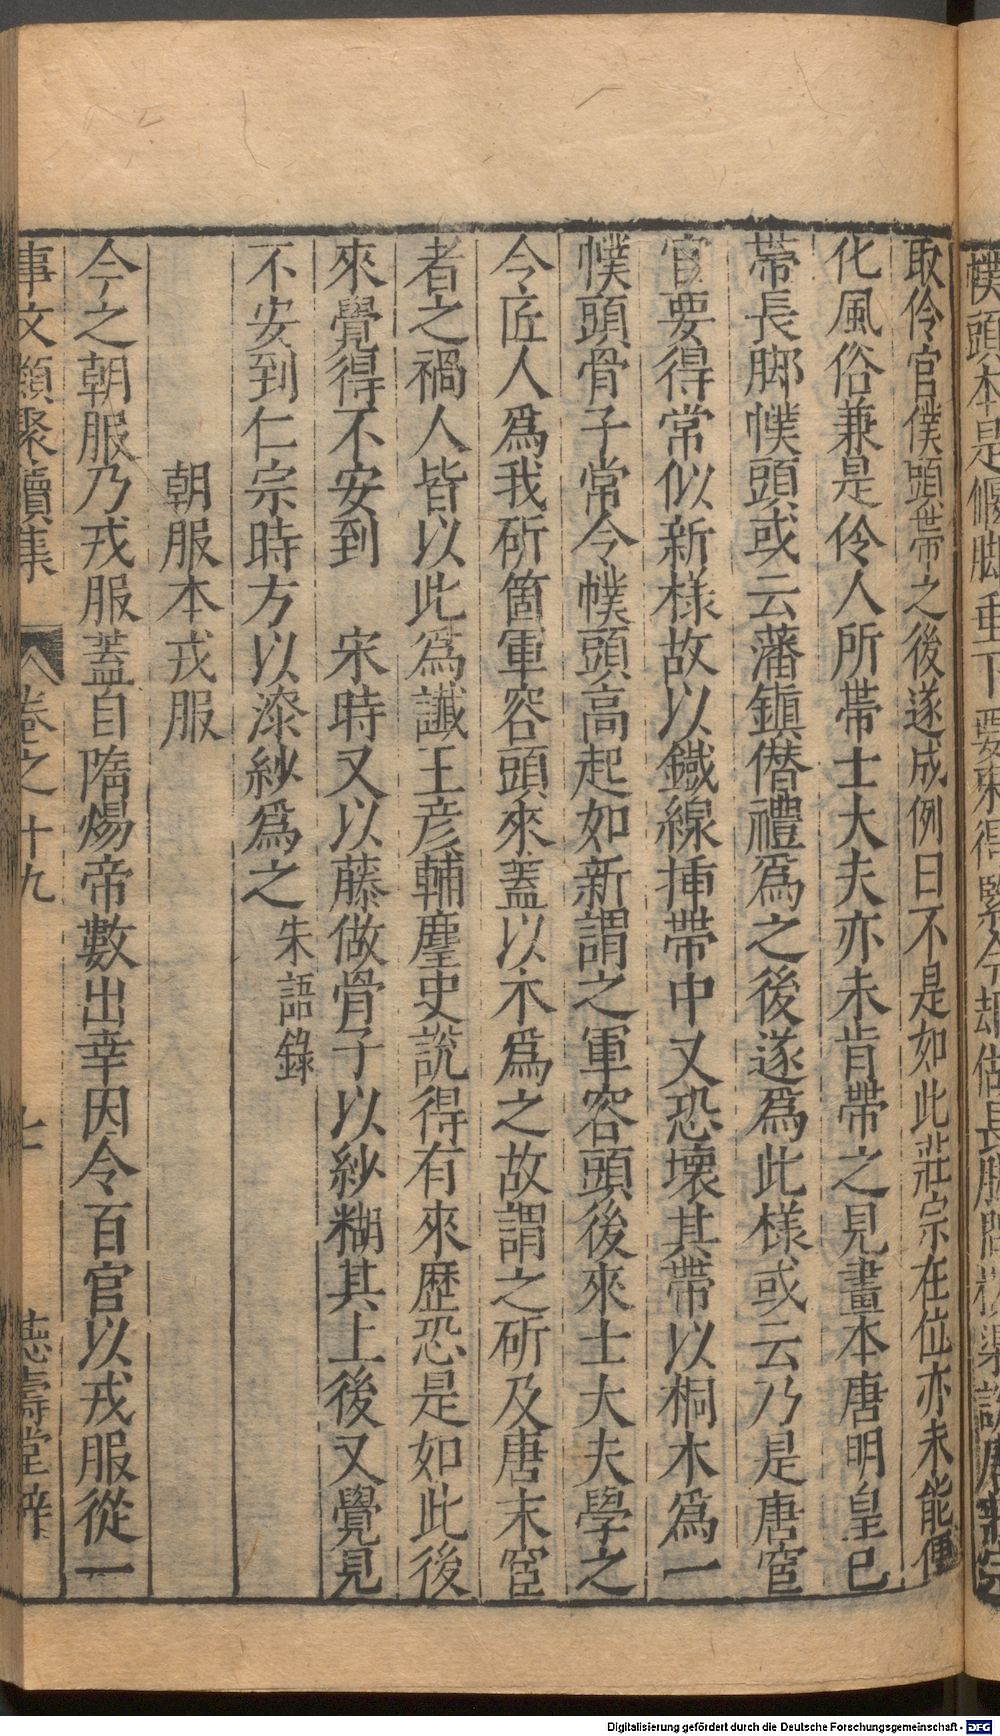 幞頭本是偃脚垂下要束得緊今却做長脚
取伶官僕頭帶之後遂成例曰不是如此莊宗在位亦未能便
化風俗兼是伶人所帶士大夫亦未肯帶之見畫本唐明皇已
帶長脚幞頭或云藩鎮僣禮爲之後遂爲此樣或云乃是唐宦
官要得常似新樣故以鐡線揷帶中又恐壞其帶以桐木爲一
幞頭骨子常令幞頭高起如新謂之軍容頭後來士大夫學之
令匠人爲我斫箇軍容頭來蓋以木爲之故謂之斫及唐末宦
者之禍人皆以此爲讖王彦輔麈史說得有來歷恐是如此後
來覺得不安到 宋時又以藤做骨子以紗糊其上後又覺見
不安到仁宗時方以漆紗爲之朱語錄
朝服本戎服
今之朝服乃戎服蓋自隋煬帝數出幸因令百官以戎服從一
事文類聚續集 卷之十九 七 德壽堂梓
Digitalisierung gefördert durch die Deutsche Forschungsgemeinschaft - DFG